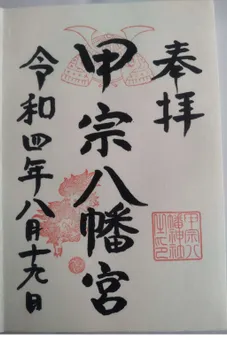 奉拝
甲宗八幡宮
令和四年八月十九日
甲宗八
幡神社
之印